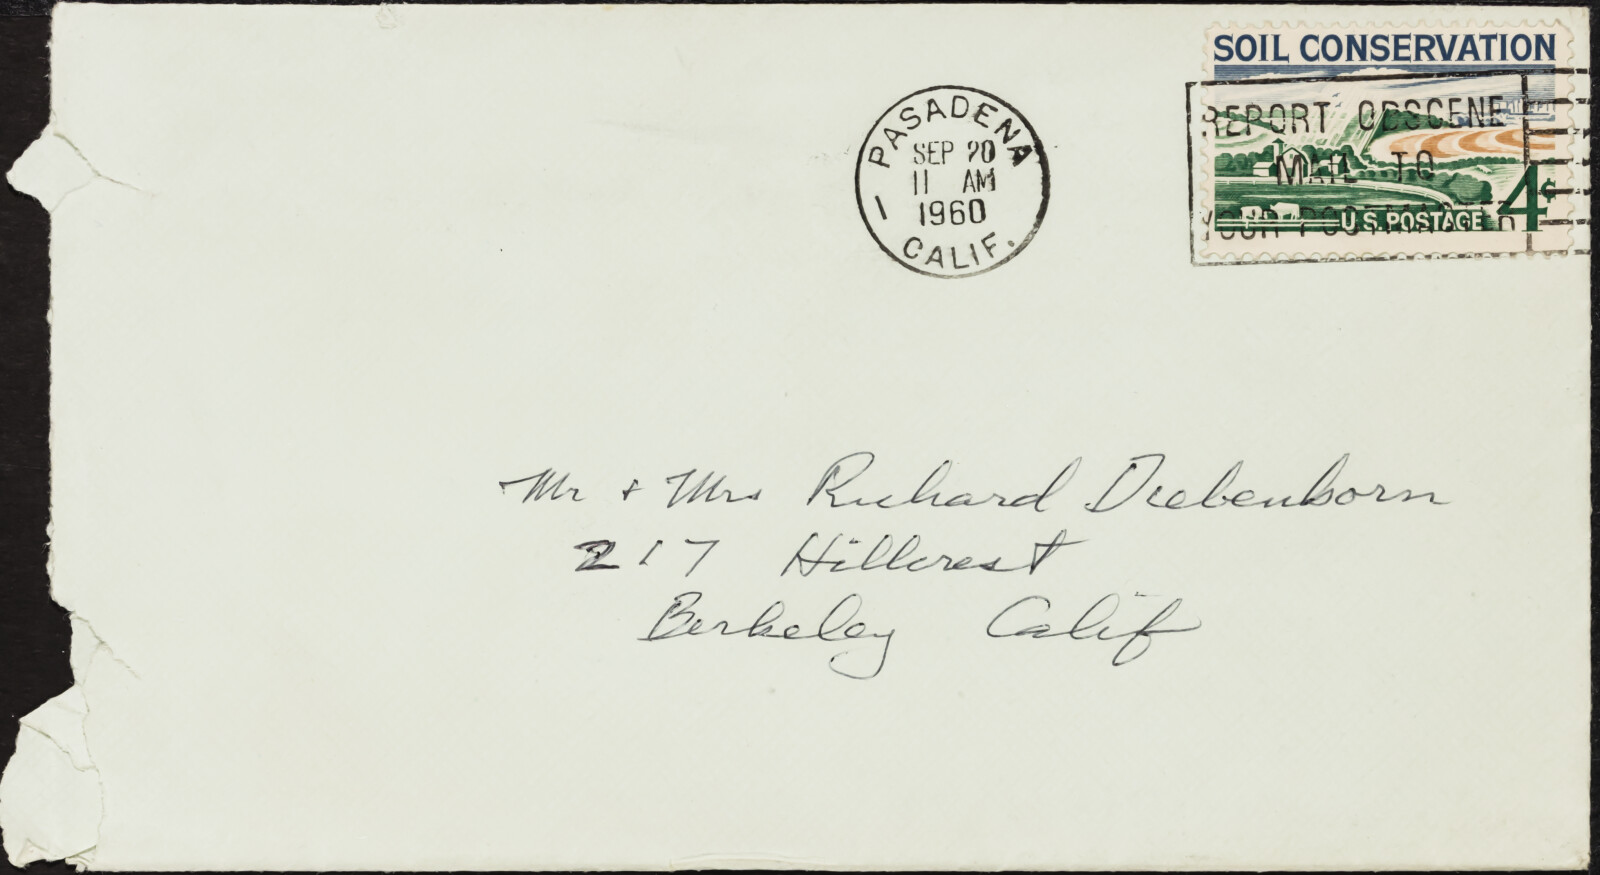 SOIL CONSERVATION
PASADENA
SEP 20
11 AM
1960
CALIF.
REPORT OBSCENE
MAIL TO
YOUR POSTMASTER
4¢
U.S. POSTAGE
Mr + Mrs Richard Diebenkorn
217 Hillcrest
Berkeley Calif